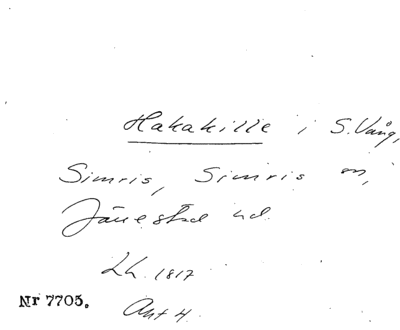 Hakakille i S. Vång,
Simris, Simris sn,
Järrestad hd.
Lh. 1817
Akt 4.
Nr 7705.